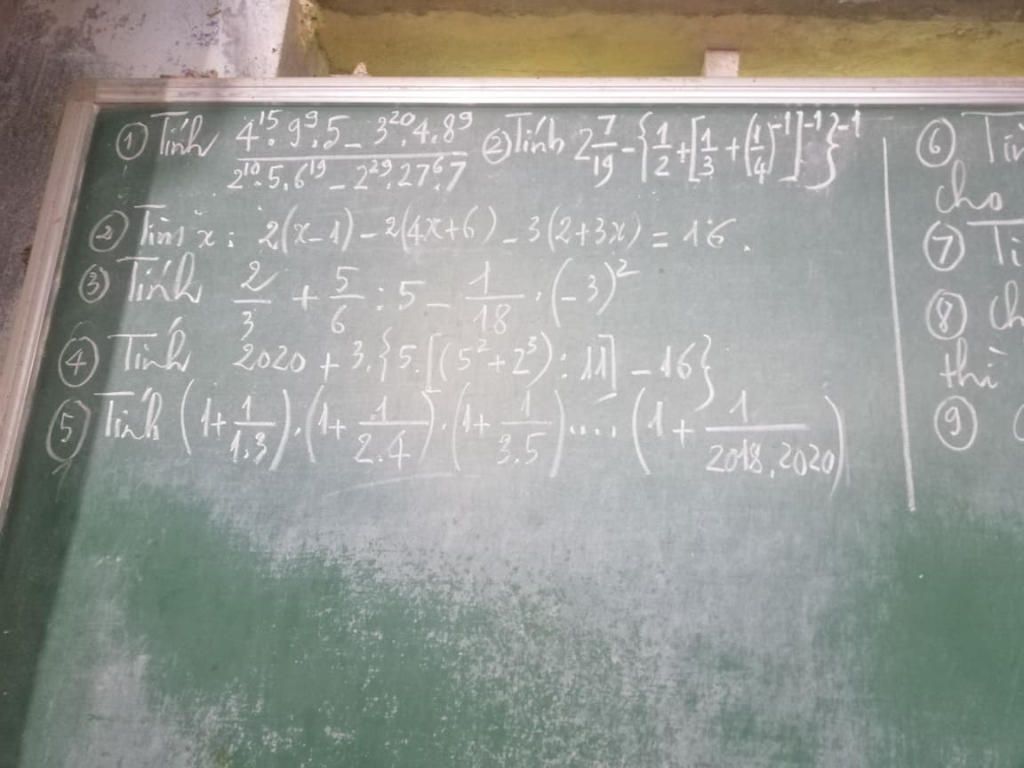 ① Tính (4^15 . 9^9 . 5 - 3^20 . 4 . 8^9) / (2^10 . 5 . 6^19 - 2^29 . 27^6 . 7) ② Tính 2 7/19 - {1/2 + [1/3 + (1/4)^-1]^-1}^-1
② Tìm x : 2(x-1) - 2(4x+6) - 3(2+3x) = 16 .
③ Tính 2/3 + 5/6 : 5 - 1/18 . (-3)^2
④ Tính 2020 + 3.{5.[(5^2+2^3) : 11] - 16}
⑤ Tính (1+1/1.3).(1+1/2.4).(1+1/3.5)....(1+1/2018.2020)
⑥
cho
⑦
⑧
thì
⑨